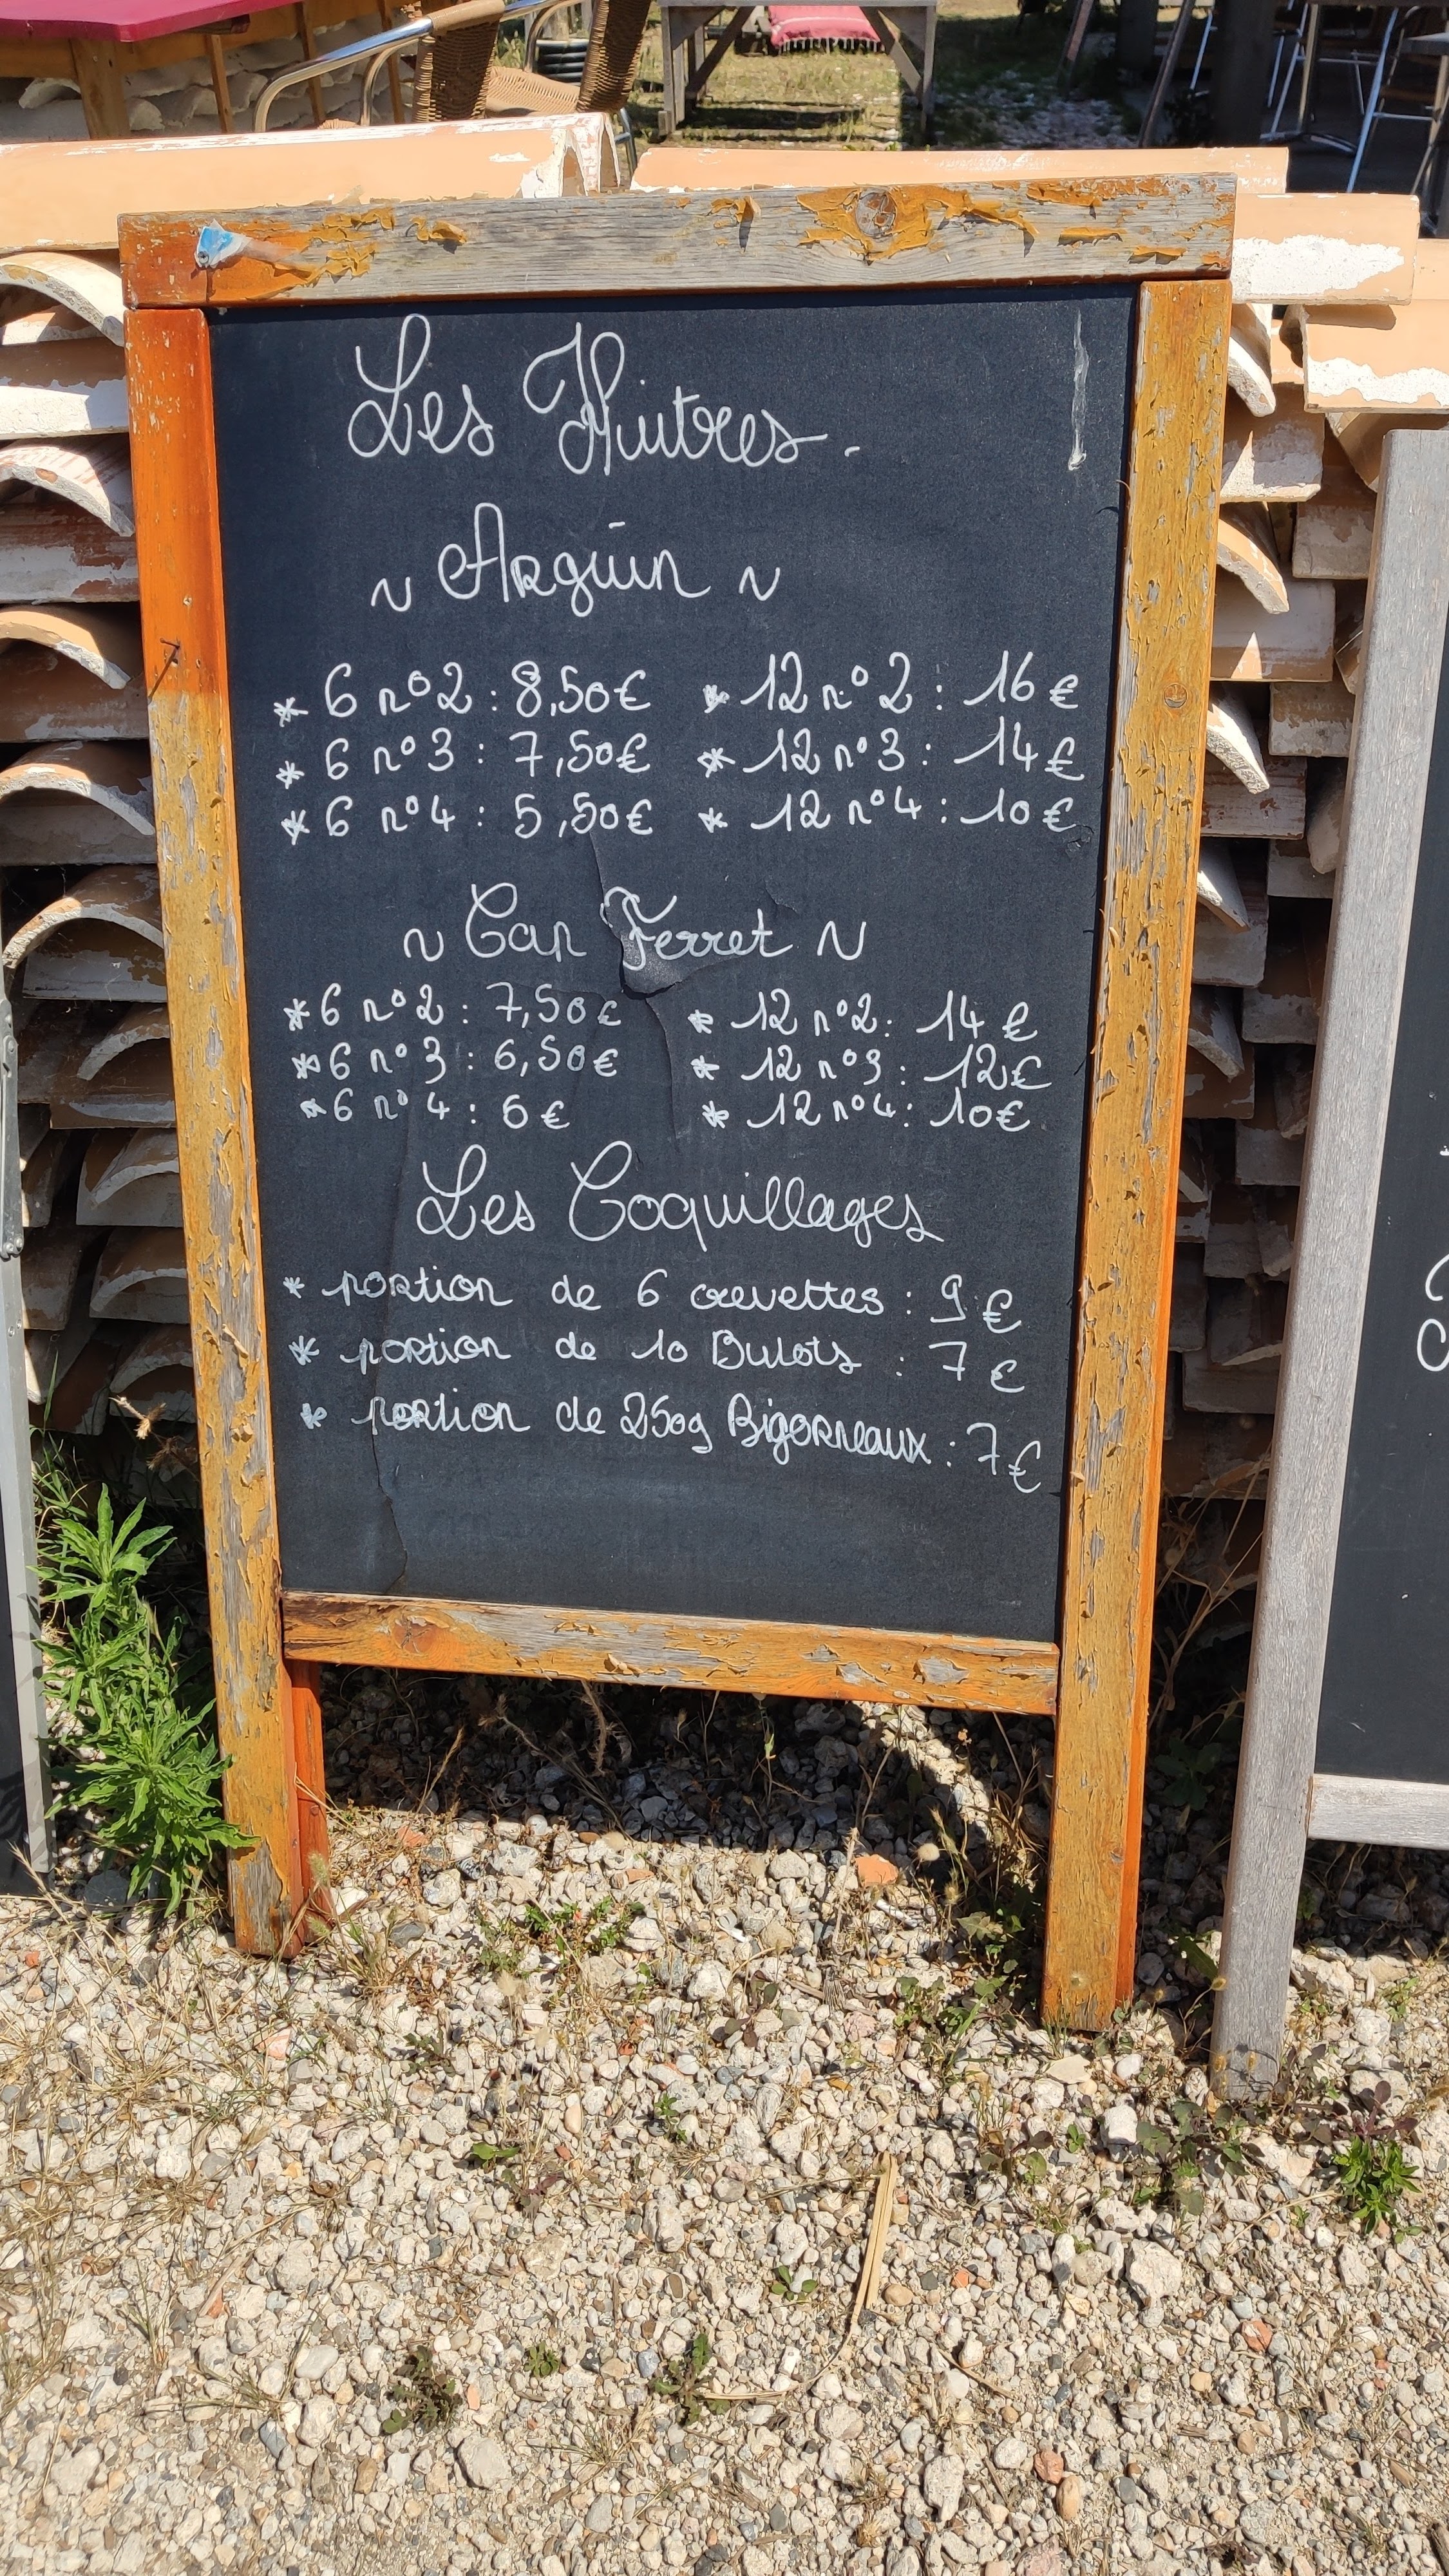 Les Huitres.
~ Arguin ~
* 6 n°2 : 8,50€ * 12 n°2 : 16€
* 6 n°3 : 7,50€ * 12 n°3 : 14€
* 6 n°4 : 5,50€ * 12 n°4 : 10€
~ Cap Ferret ~
* 6 n°2 : 7,50€ * 12 n°2 : 14€
* 6 n°3 : 6,50€ * 12 n°3 : 12€
* 6 n°4 : 6€ * 12 n°4 : 10€
Les Coquillages
* portion de 6 crevettes : 9€
* portion de 10 Bulots : 7€
* portion de 250g Bigorneaux : 7€